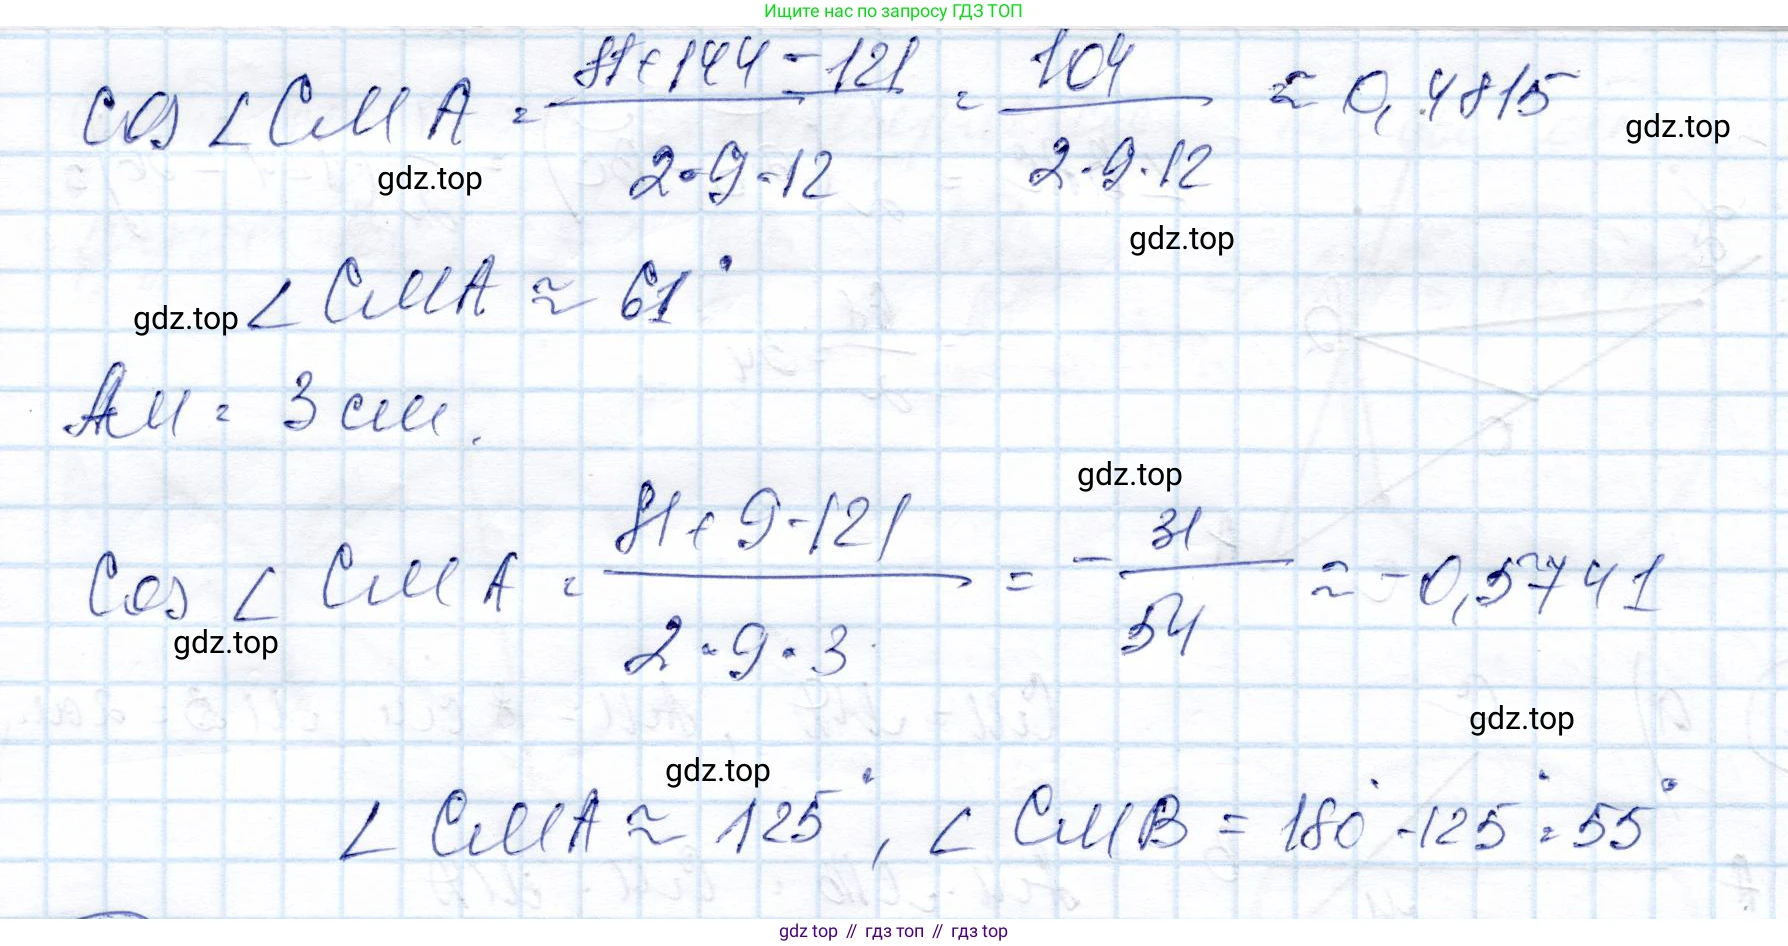 Ищите нас по запросу ГДЗ ТОП
cos ∠CMA = (81 + 144 - 121) / (2 · 9 · 12) = 104 / (2 · 9 · 12) ≈ 0,4815
gdz.top
gdz.top
gdz.top
∠CMA ≈ 61°
gdz.top
AM = 3 см.
gdz.top
cos ∠CMA = (81 + 9 - 121) / (2 · 9 · 3) = - 31 / 54 ≈ -0,5741
gdz.top
gdz.top
gdz.top
∠CMA ≈ 125°, ∠CMB = 180° - 125° = 55°
gdz top // гдз топ // гdz top